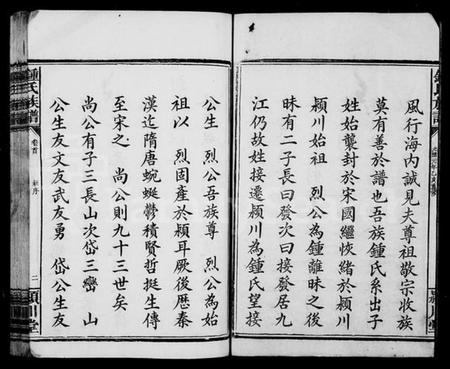 鍾氏族譜
風行海內誠見夫尊祖敬宗收族
莫有善於譜也吾族鍾氏系出子
姓始襲封於宋國繼恢緒於潁川
潁川始祖　烈公為鍾離昧之後
昧有二子長曰發次曰接發居九
江仍故姓接遷潁川為鍾氏望接
潁川堂
公生　烈公吾族尊　烈公為始
祖以　烈固產於潁耳厥後歷秦
漢迄隋唐蜿蜒鬱積賢哲挺生傳
至宋之　尚公則九十三世矣
尚公有子三長山次岱三巒　山
公生友文友武友勇　岱公生友
鍾氏族譜
卷首
二
潁川堂